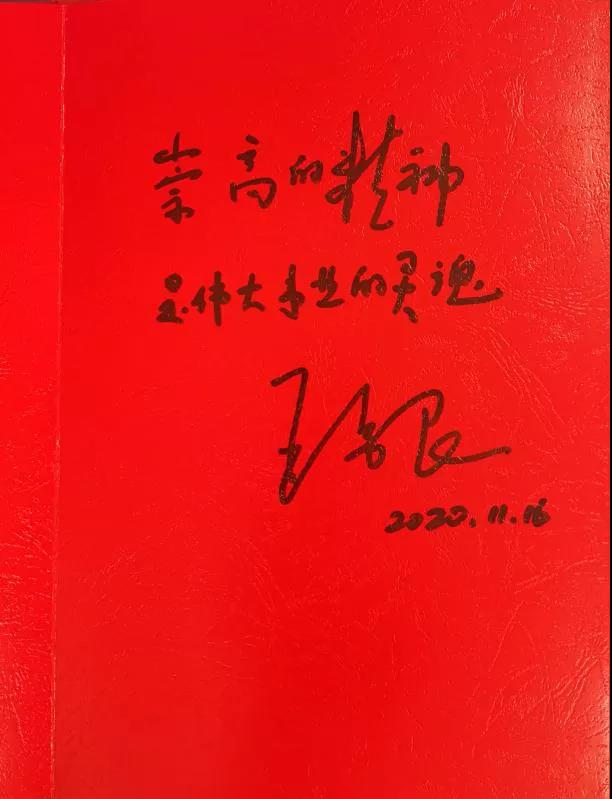 崇高的精神
是伟大事业的灵魂
2020.11.16